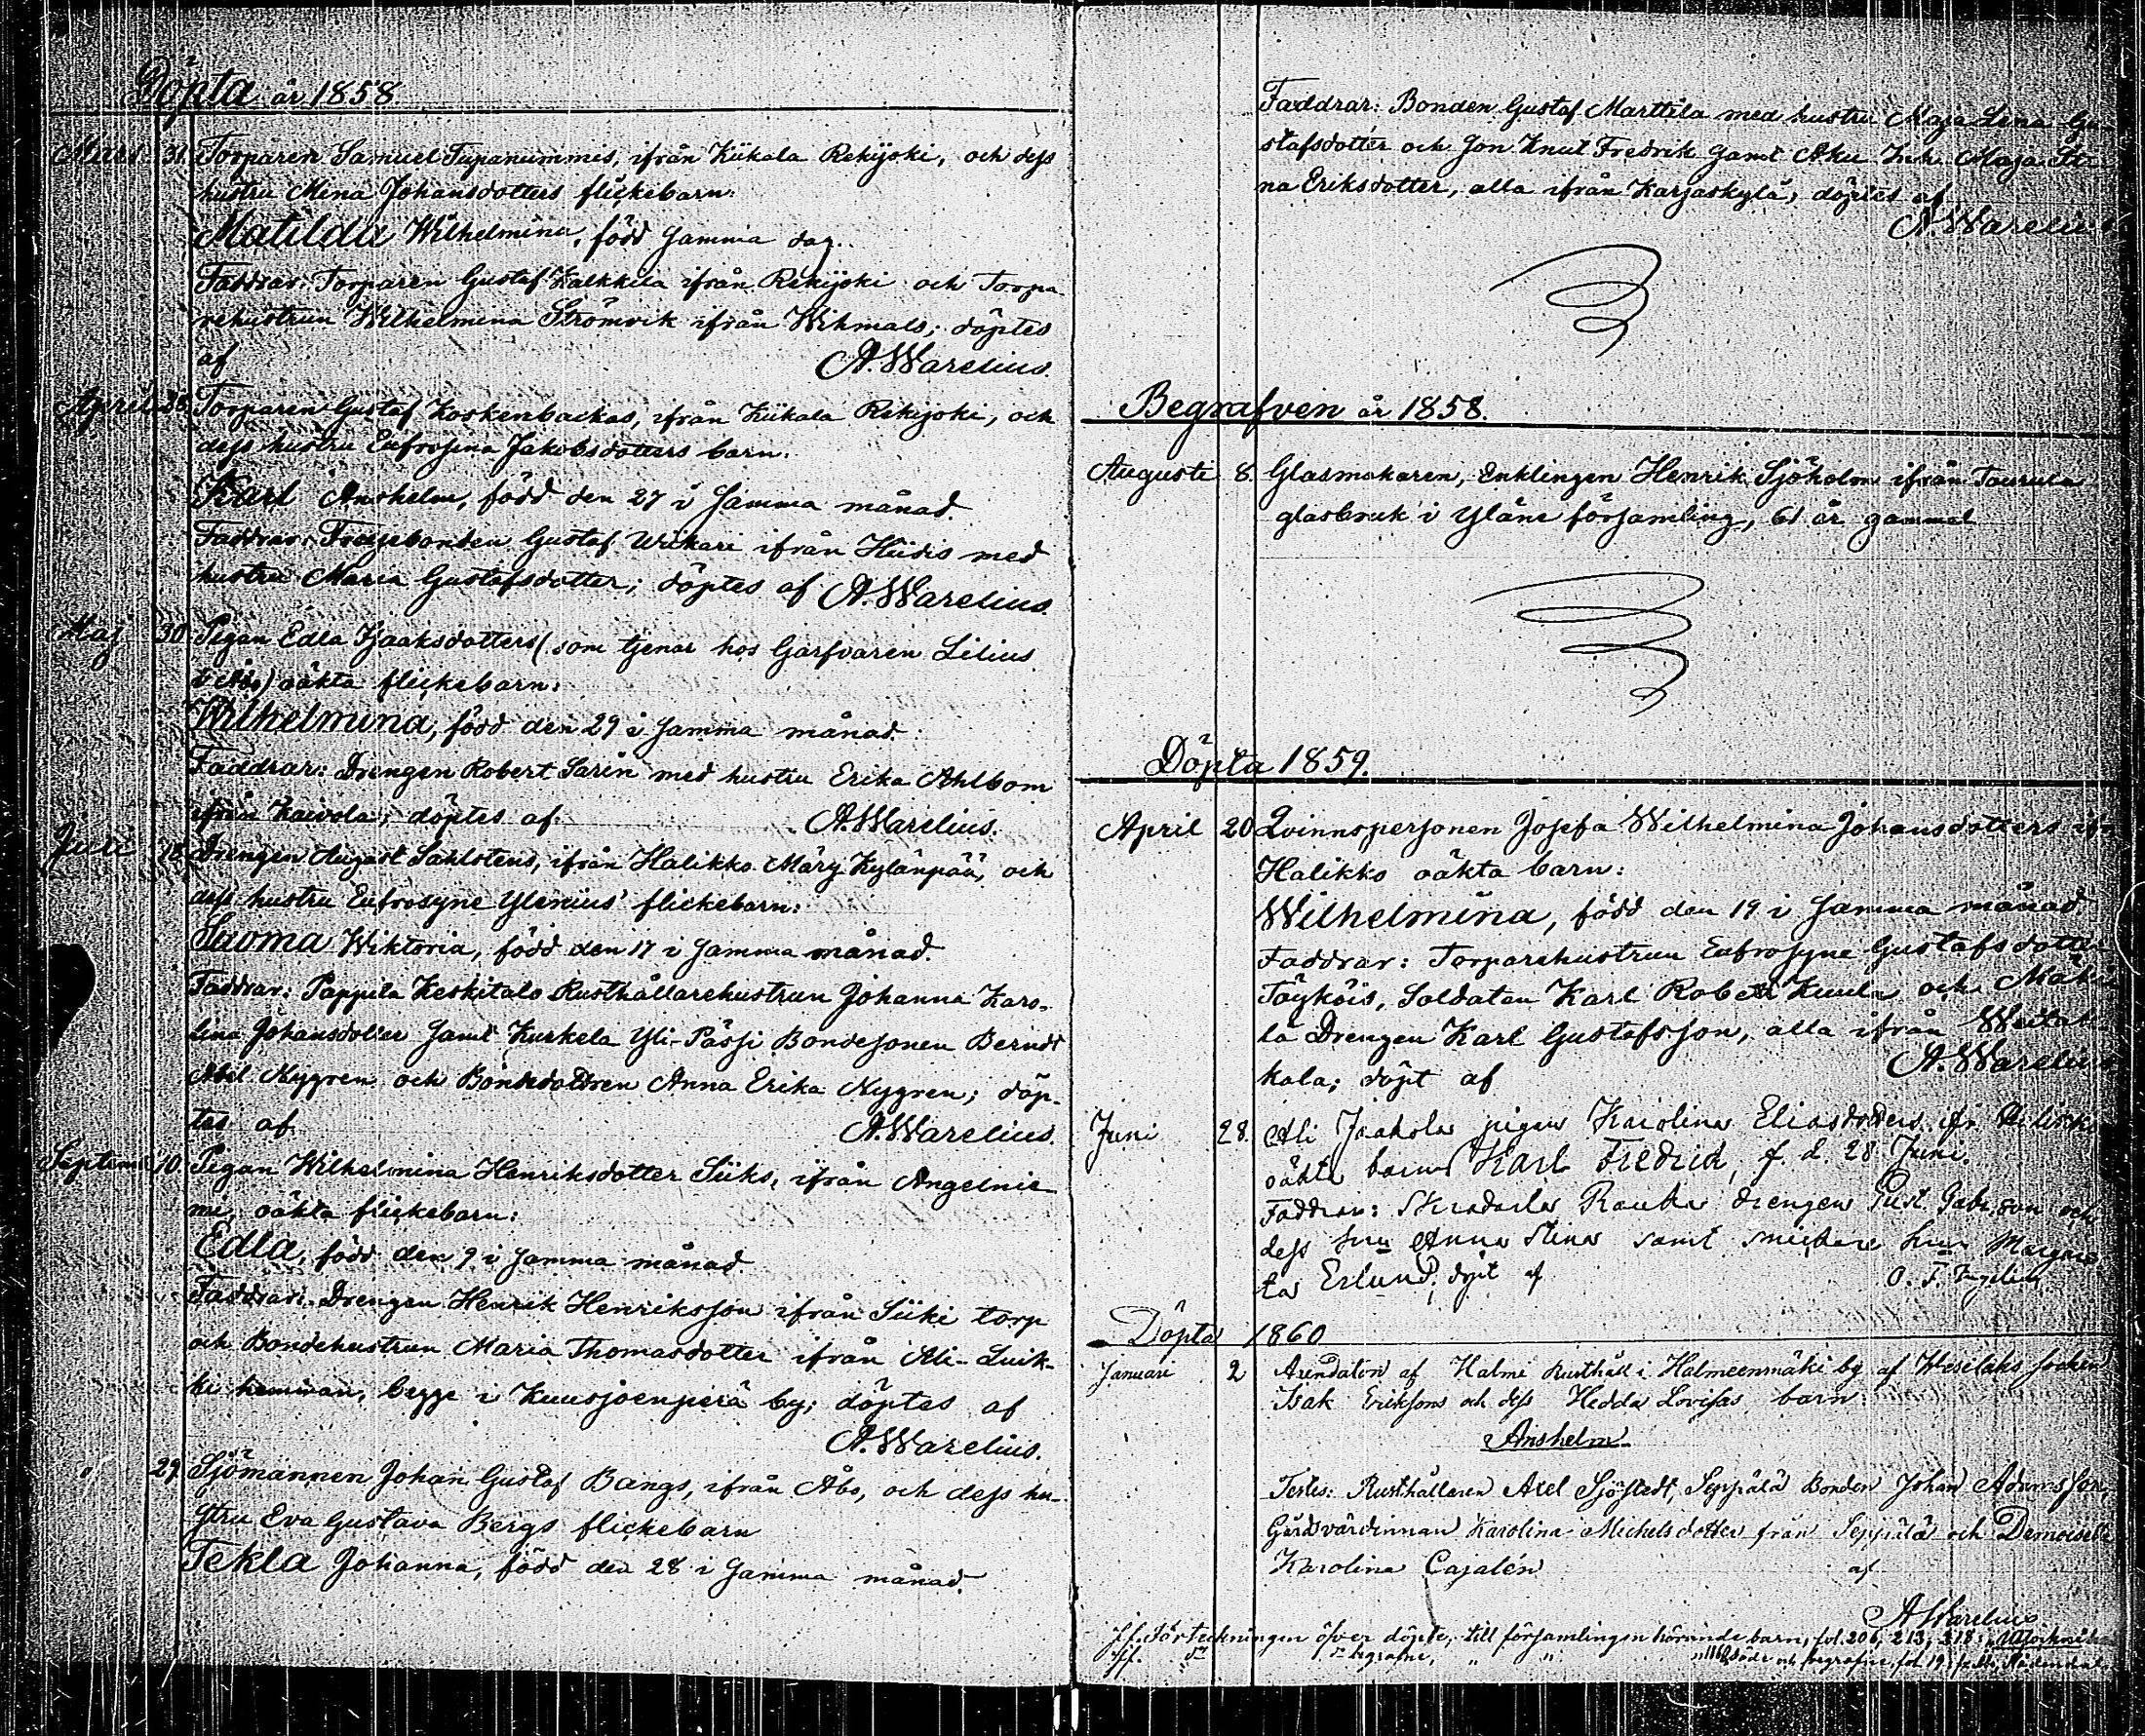 Döpta år 1858.
Mars 31. Torparen Samuel Tupanummis, ifrån Kiikala Rekijoki, och dess
hustru Mina Johansdotters flickebarn:
Matilda Wilhelmina, född samma dag.
Faddrar: Torparen Gustaf Kalkkila ifrån Rekijoki och Torpa-
rehustrun Wilhelmina Strömvik ifrån Wihmalo; döptes
af A. Warelius.
April 28. Torparen Gustaf Koskenbackas, ifrån Kiikala Rekijoki, och
dess hustru Eufrosina Jakobsdotters barn:
Karl Anshelm, född den 27 i samma månad.
Faddrar: Bonden Gustaf Urikari ifrån Hiidis med
hustru Maria Gustafsdotter; döptes af A. Warelius.
Maj 30 Pigan Edla Isaaksdotters (som tjenar hos Garfvaren Lilius
i Åbo) oäkta flickebarn:
Wilhelmina, född den 29 i samma månad.
Faddrar: Drengen Robert Sarin med hustru Erika Ahlbom
ifrån Kaivola; döptes af A. Warelius.
Juli 18. Drengen August Sahlstens, ifrån Halikko Märy Kylänpää, och
dess hustru Eufrosyne Ylenius' flickebarn:
Suoma Wiktoria, född den 17 i samma månad.
Faddrar: Pappila Keskitalo Rusthållarehustrun Johanna Karo-
lina Johansdotter samt Kurkela Yli-Pässi Bondesonen Berndt
Abel Nygren och Bondedottren Anna Erika Nygren; döp-
tes af A. Warelius.
Septemb. 10. Pigan Wilhelmina Henriksdotter Siiks, ifrån Angelnie-
mi, oäkta flickebarn:
Edla, född den 9 i samma månad.
Faddrar: Drengen Henrik Henriksson ifrån Siiki torp
och Bondehustrun Maria Thomasdotter ifrån Ali-Luik-
ki hemman, begge i Kuusjoenperä by; döptes af
A. Warelius.
" 29. Sjömannen Johan Gustaf Bangs, ifrån Åbo, och dess hu-
stru Eva Gustava Bergs flickebarn
Tekla Johanna, född den 28 i samma månad.
Faddrar: Bonden Gustaf Marttila med hustru Maja Lena Gu-
stafsdotter och Son Knut Fredrik samt Aku Maja Sti-
na Eriksdotter, alla ifrån Karjaskylä; döptes af
A. Warelius
Begrafven år 1858.
Augusti 8. Glasmakaren, Enklingen Henrik Sjöholm ifrån Tourula
glasbruk i Yläne församling, 61 år gammal
Döpta 1859.
April 20 Qvinnspersonen Josefa Wilhelmina Johansdotters ifr
Halikko oäkta barn:
Wilhelmina, född den 19 i samma månad
Faddrar: Torparehustrun Eufrosyne Gustafsdotter
Töyköis, Soldaten Karl Robert Kuula och Mäki
lä Drengen Karl Gustafsson, alla ifrån
kala; döpt af A. Warelius
Juni 28. Ali Jaakola pigan Karolina Eliasdotters
oäkta barn Karl Fredrid, f. d. 28 Juni.
Faddrar: Rauka drengen Gust. Gabr.son och
dess hru Anna Stina samt hru Margare-
ta Erlund; döpt af O. F.
Döpta 1860
Januari 2 Arendatorn af Halmi Rusthåll i Halmeenmäki by af Wesilaks socken
Isak Eriksons och dess Hedda Lovisas barn
Anshelm
Testes: Rusthållaren Axel Sjöstedt, Seppälä Bonden Johan Adamsson,
Gårdsvärdinnan Karolina Michelsdotter från Seppälä och Demoiselle
Karolina Cajalén af
A Warelius
Jf. Förteckningen öfver döpte, till församlingen hörande barn, fol. 206, 213, 218
Jf. D:o D:o begrafne, " " födde och begrafne, fol. 19